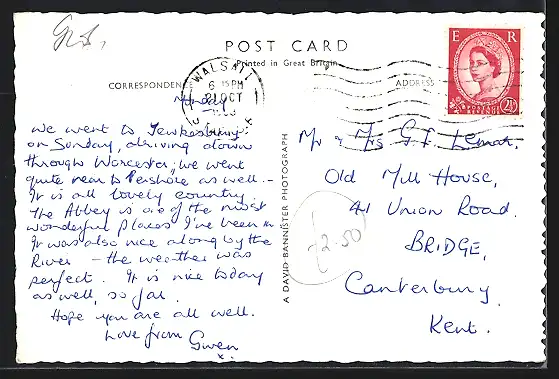 POST CARD
Printed in Great Britain
CORRESPONDENCE
ADDRESS
E R
POSTAGE
REVENUE
2½
WALSALL
6 15 PM
21 OCT
Monday
We went to Tewkesbury
on Sunday, driving down
through Worcester, we went
quite near to Pershore as well. -
It is all lovely country.
The Abbey is one of the most
wonderful places I've been in
It was also nice along by the
River - the weather was
perfect. It is nice today
as well, so far.
Hope you are all well.
Love from
Gwen
x.
A DAVID BANNISTER PHOTOGRAPH
Mr & Mrs G.F.
Old Mill House,
41 Union Road.
BRIDGE,
Canterbury
Kent.
2.50